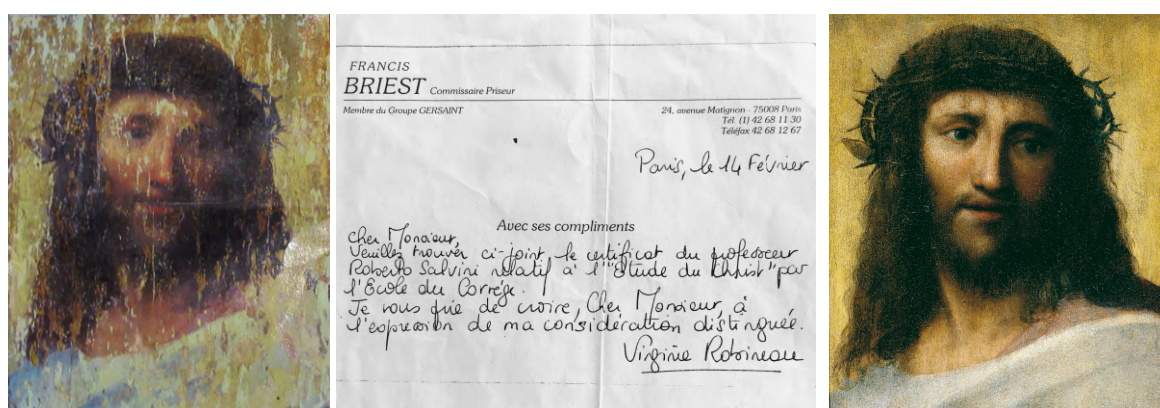 FRANCIS
BRIEST Commissaire Priseur
Membre du Groupe GERSAINT
24, avenue Matignon - 75008 Paris
Tél. (1) 42 68 11 30
Téléfax 42 68 12 67
Paris, le 14 Février
Avec ses compliments
Cher Monsieur,
Veuillez trouver ci-joint le certificat du professeur
Roberto Salvini relatif à l'"Etude du Christ" par
l'Ecole du Corrège.
Je vous prie de croire, Cher Monsieur, à
l'expression de ma considération distinguée.
Virginie Robineau